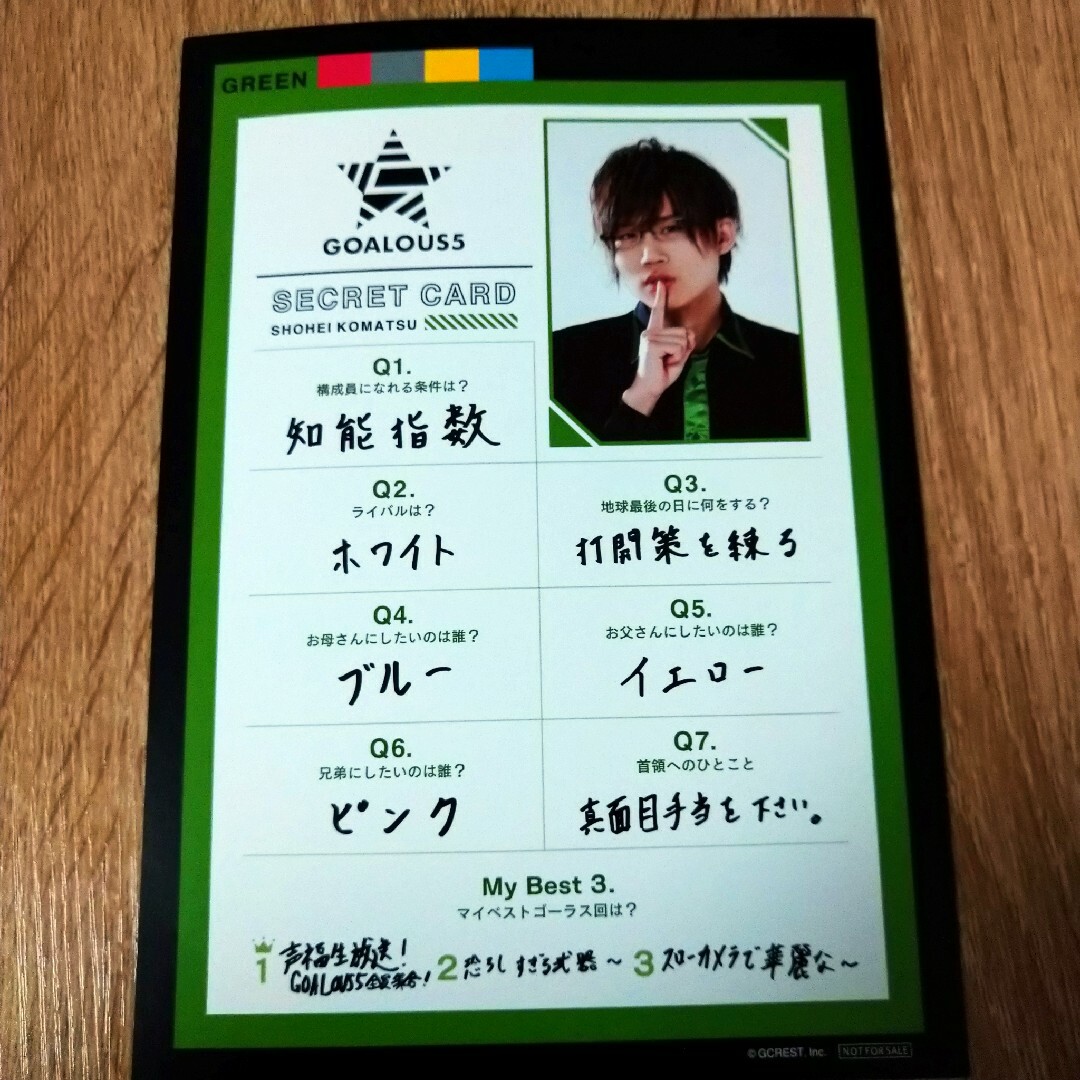 GREEN
GOALOUS5
SECRET CARD
SHOHEI KOMATSU
Q1.
構成員になれる条件は?
知能指数
Q2.
ライバルは?
ホワイト
Q3.
地球最後の日に何をする?
打開策を練る
Q4.
お母さんにしたいのは誰?
ブルー
Q5.
お父さんにしたいのは誰?
イエロー
Q6.
兄弟にしたいのは誰?
ピンク
Q7.
首領へのひとこと
真面目手当を下さい。
My Best 3.
マイベストゴーラス回は?
1 声福生放送!
GOALOUS5全員集合!
2 恐ろしすぎる武器～
3 スローカメラで華麗な～
©GCREST, Inc. NOT FOR SALE